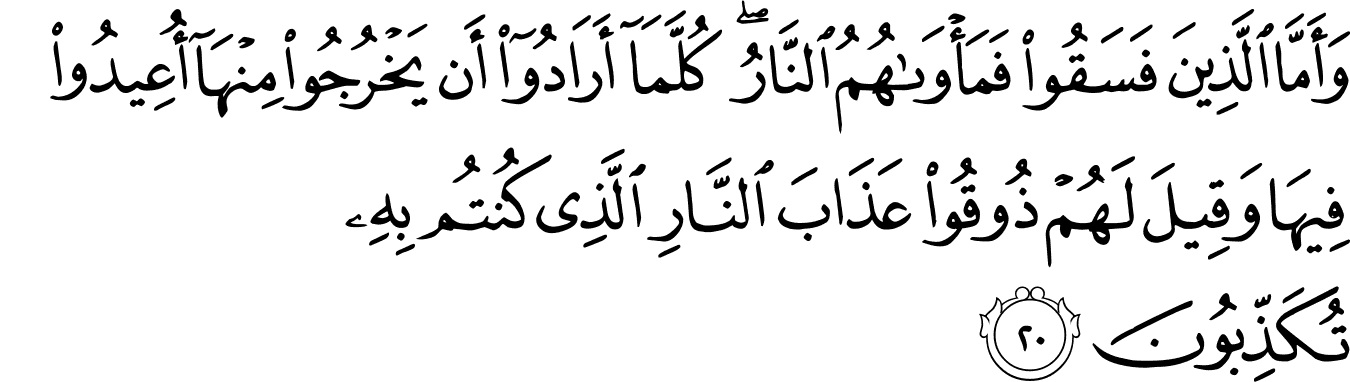 وَأَمَّا ٱلَّذِينَ فَسَقُوا۟ فَمَأْوَىٰهُمُ ٱلنَّارُ ۖ كُلَّمَآ أَرَادُوٓا۟ أَن يَخْرُجُوا۟ مِنْهَآ أُعِيدُوا۟
فِيهَا وَقِيلَ لَهُمْ ذُوقُوا۟ عَذَابَ ٱلنَّارِ ٱلَّذِى كُنتُم بِهِۦ
تُكَذِّبُونَ ٢٠